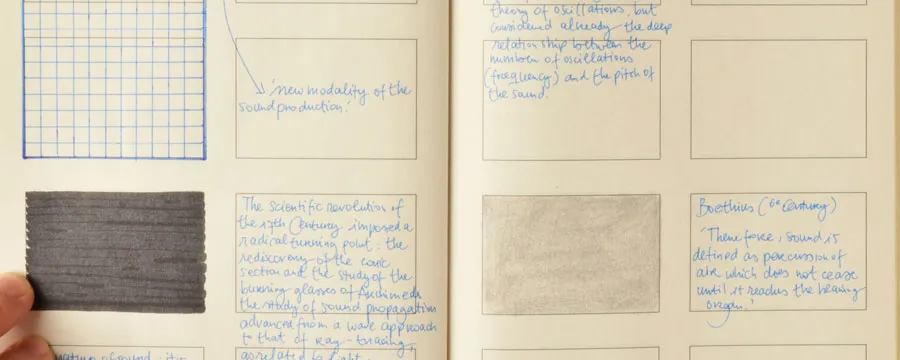 'new modality of the
sound production.'
The scientific revolution of
the 17th Century imposed a
radical turning point: the
rediscovery of the conic
section and the study of the
burning glasses of Archimedes
the study of sound propagation
advanced from a wave approach
to that of ray-tracing,
as related to light.
nature of sound: it is
theory of oscillations, but
considered already the deep
relationship between the
number of oscillations
(frequency) and the pitch of
the sound.
Boethius (6th Century)
'Therefore, sound is
defined as percussion of
air which does not cease
until it reaches the hearing
organ.'